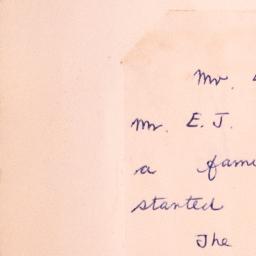 Mr.
Mr. E. J.
a
started
The